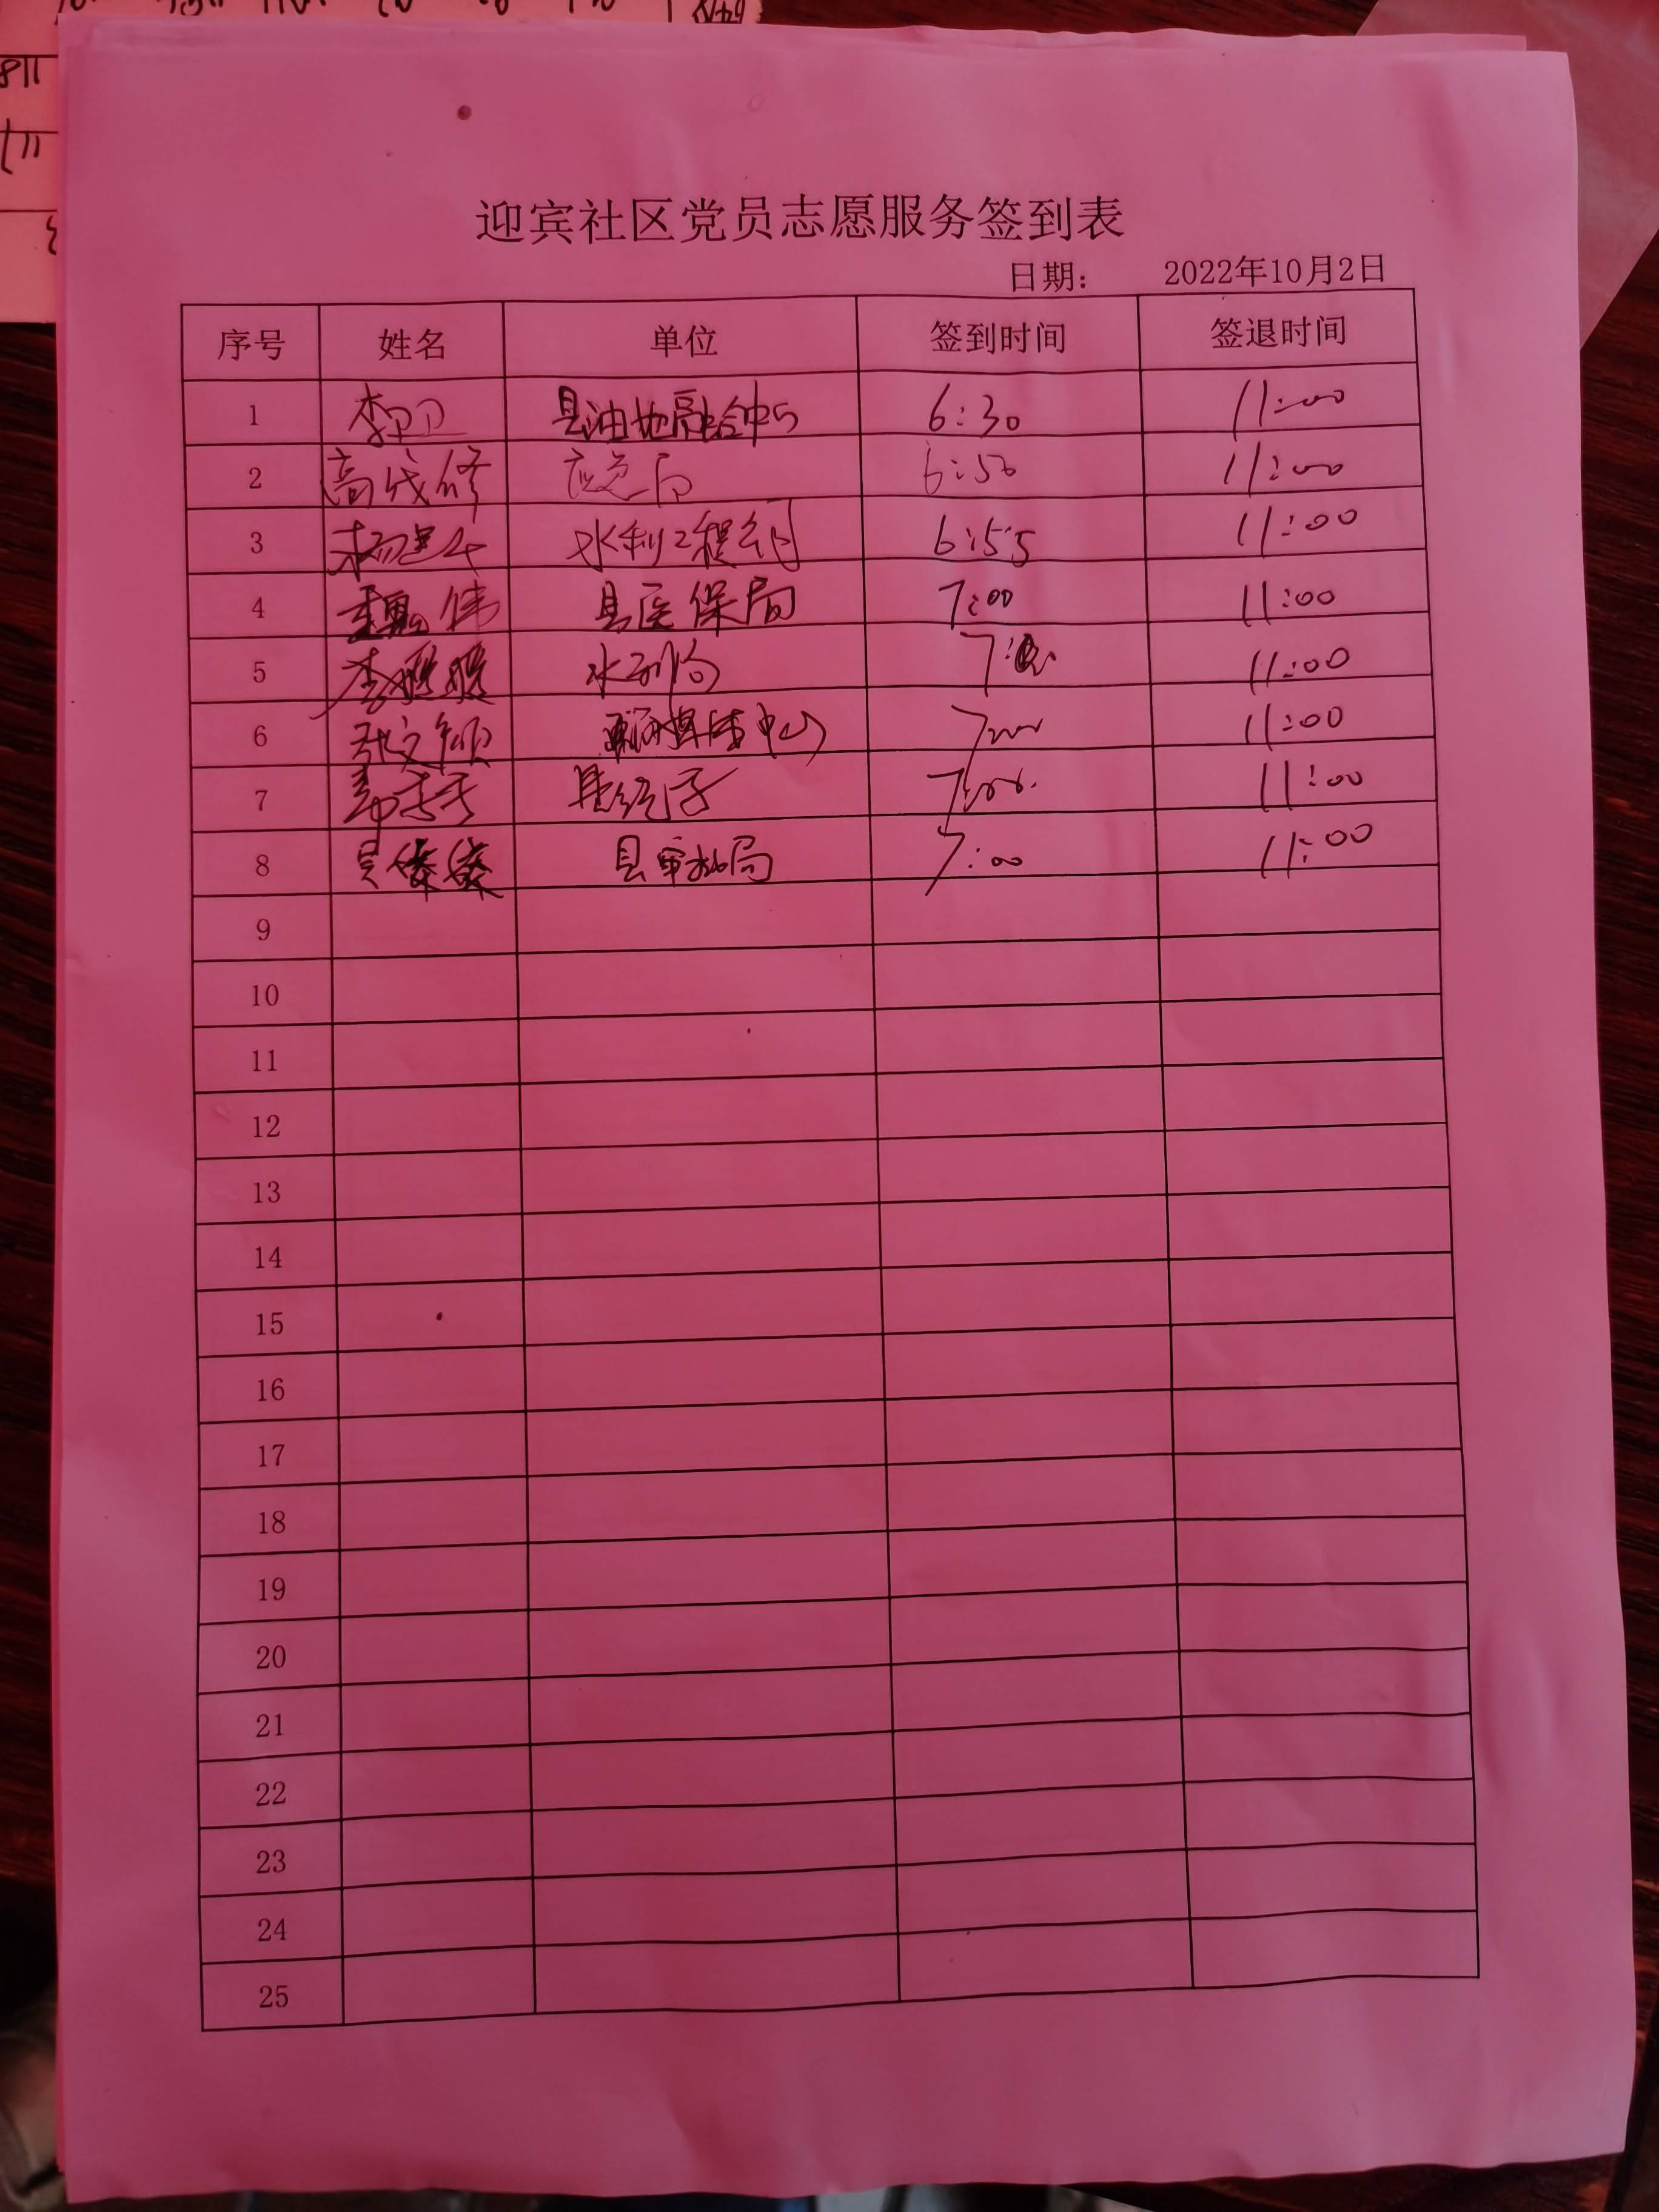 迎宾社区党员志愿服务签到表
日期： 2022年10月2日
序号 姓名 单位 签到时间 签退时间
1 李卫卫 县油地融合中心 6:30 11:00
2 高成修 应急局 6:50 11:00
3 水利工程公司 6:55 11:00
4 伟 县医保局 7:00 11:00
5 李 水利局 11:00
6 张文 中心 7:00 11:00
7 7:00 11:00
8 吴 县审批局 7:00 11:00
9
10
11
12
13
14
15
16
17
18
19
20
21
22
23
24
25